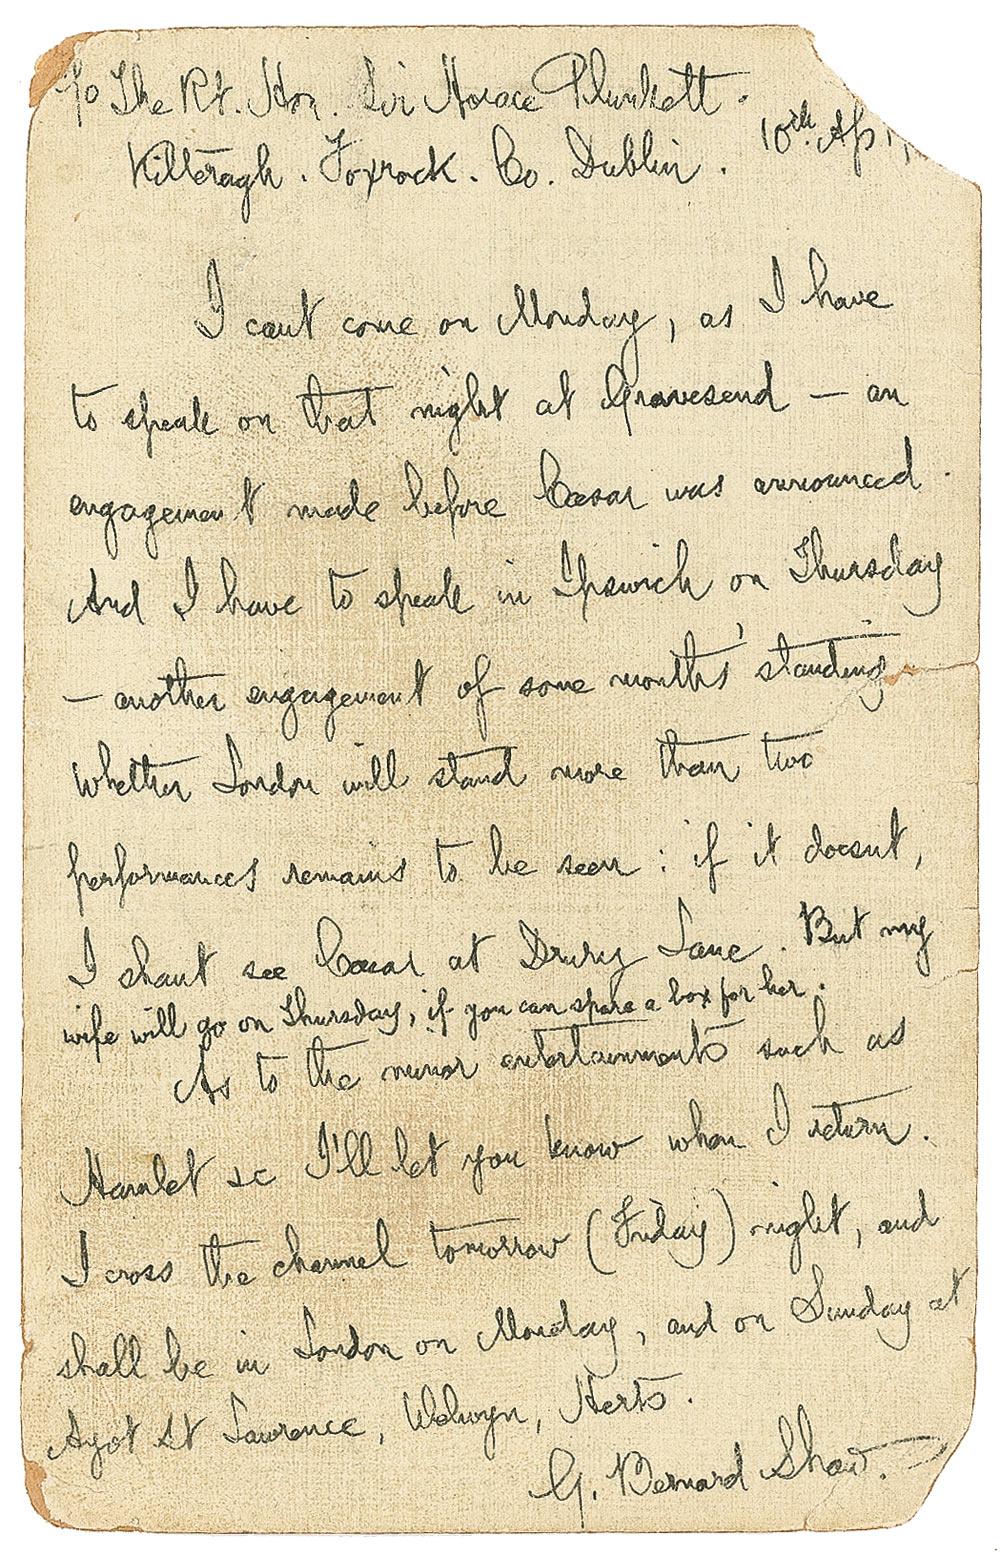 To The Rt. Hon. Sir Horace Plunkett.
10th. Ap
Kilteragh. Foxrock. Co. Dublin.
I cant come on Monday, as I have
to speak on that night at Gravesend — an
engagement made before Caesar was announced.
And I have to speak in Ipswich on Thursday
— another engagement of some months' standing.
Whether London will stand more than two
performances remains to be seen: if it doesnt,
I shant see Caesar at Drury Lane. But my
wife will go on Thursday, if you can spare a box for her.
As to the minor entertainments such as
Hamlet &c I'll let you know when I return.
I cross the channel tomorrow (Friday) night, and
shall be in London on Monday, and on Sunday at
Ayot St Lawrence, Welwyn, Herts.
G. Bernard Shaw.